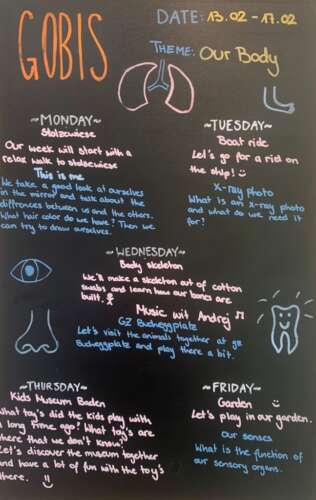 GOBIS
DATE: 13.02 - 17.02
THEME: Our Body
~MONDAY~
Stolzewiese
Our week will start with a
relax walk to stolsewiese
This is me
We take a good look at ourselves
in the mirror and talk about the
diffrences between us and the others.
What hair color do we have? Then we
can try to draw ourselves.
~TUESDAY~
Boat ride
Let's go for a ried on
the ship! :)
X-ray photo
What is an x-ray photo
and what do we need it
for?
~WEDNESDAY~
Body skeleton
We'll make a skeleton out of cotton
swabs and learn how our bones are
built.
Music wit Andrej ♫
GZ Bucheggplatz
Let's visit the animals together at gz
Bucheggplatz and play there a bit.
~THURSDAY~
Kids Museum Baden
What toy's did the kids play with
a long time ago? What toy's are
there that we don't know?
Let's discover the museum together
and have a lot of fun with the toy's
there. !!
~FRIDAY~
Garden :)
Let's play in our garden.
Our senses
What is the function of
our sensory organs.